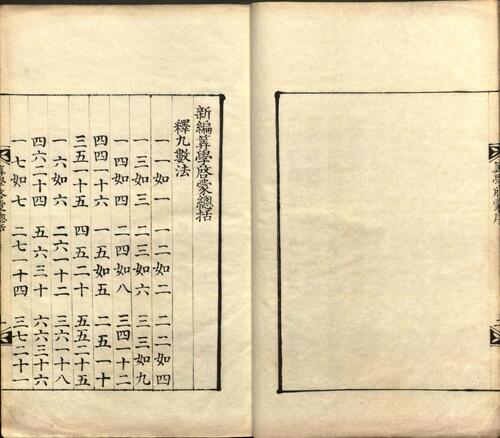 新編筭學啓蒙總括
釋九數法
一一如一 一二如二 二二如四
一三如三 二三如六 三三如九
一四如四 二四如八 三四一十二
四四一十六 一五如五 二五一十
三五一十五 四五二十 五五二十五
一六如六 二六一十二 三六一十八
四六二十四 五六三十 六六三十六
一七如七 二七一十四 三七二十一